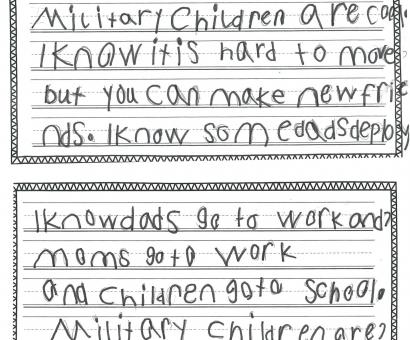 Military Children are cool.
I Know it is hard to move
but you can make new frie
nds. I Know some dads deploy
I Know dads go to work and
moms go to work
and children go to school.
Military children are